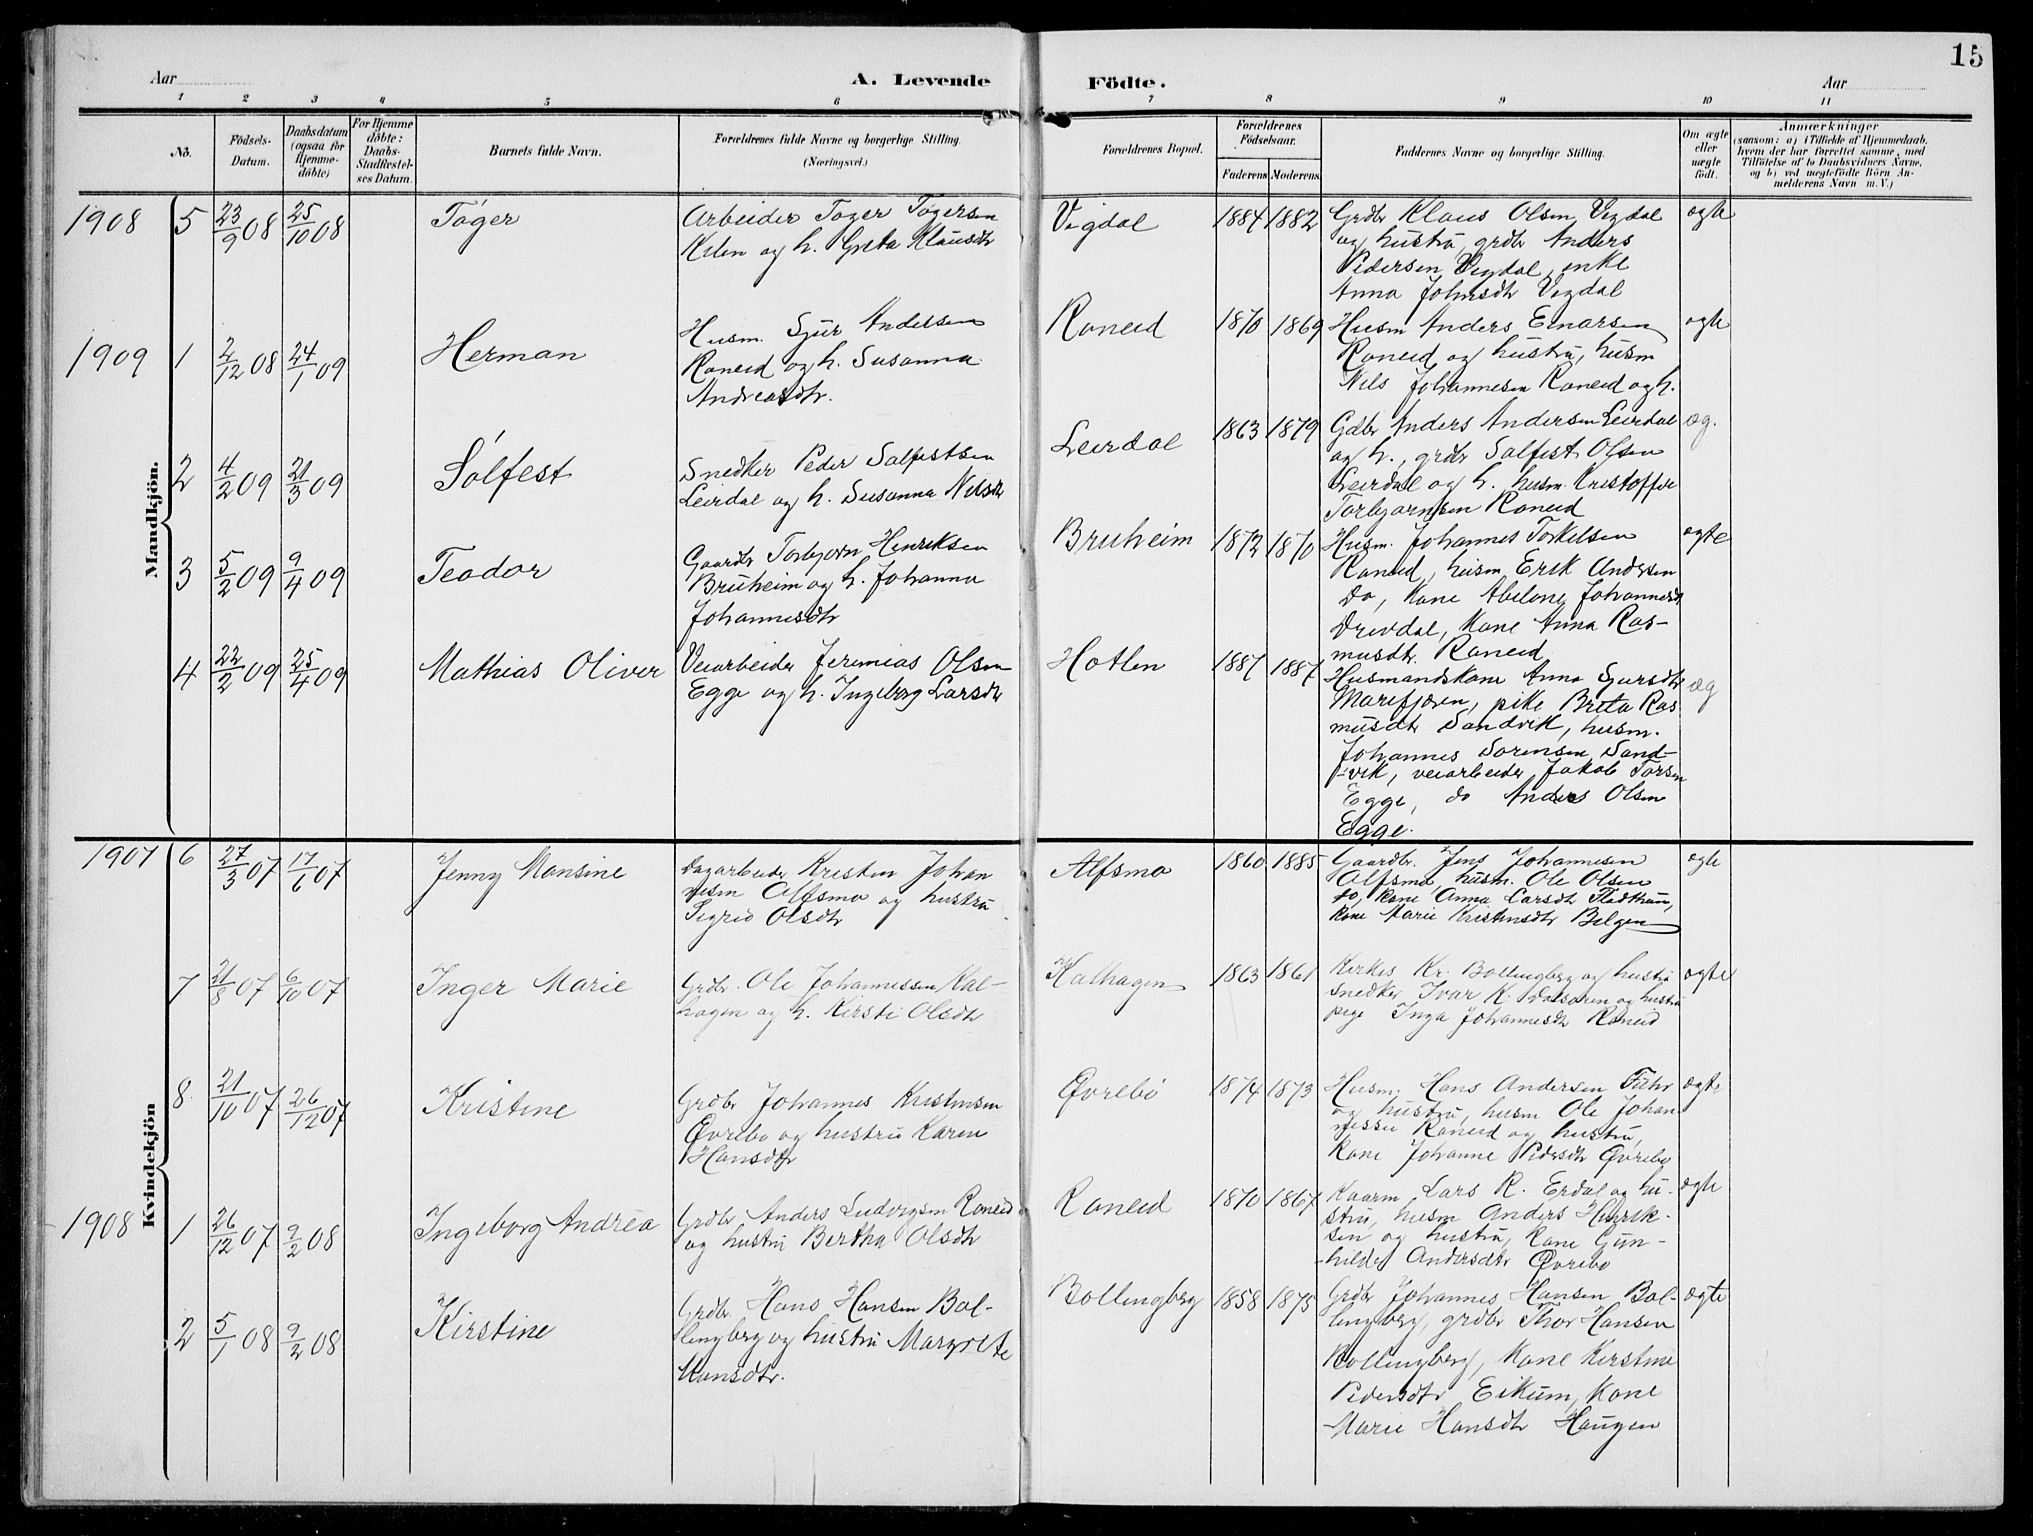 15
Aar
A. Levende
Födte.
Aar
1 2 3 4 5 6 7 8 9 10 11
No.
Födsels-
Datum.
Daabsdatum
(ogsaa for
Hjemme-
döbte)
For Hjemme
döbte:
Daabs-
Stadfæstel-
ses Datum.
Barnets fulde Navn.
Forældrenes fulde Navne og borgerlige Stilling.
(Næringsvei.)
Forældrenes Bopæl.
Forældrenes
Födselsaar.
Faderens Moderens
Faddernes Navne og borgerlige Stilling.
Om ægte
eller
uægte
födt.
Anmærkninger
(saasom: a) i Tilfælde af Hjemmedaab,
hvem der har forrettet samme, med
Tilföielse af to Daabsvidners Navne,
og b) ved uægtefödte Börn An-
melderens Navn m. V.)
Mandkjön.
1908 5 23/9 08 25/10 08 Tóger
Arbeider Toger Togersen
Kilen og h. Greta Klausdtr
Vigdal 1884 1882
Grdbr Klaus Olsen Vigdal
og hustru, grdbr Anders
Pedersen Vigdal, enke
Anna Johnsdtr Vigdal
ægte
1909 1 2/12 08 24/1 09 Herman
Husm. Sjur Andersen
Roneid og h. Susanna
Andreasdtr.
Roneid 1870 1869
Husm Anders Einarsen
Roneid og hustru, husm
Nils Johannesen Roneid og h.
ægte
2 4/2 09 21/3 09 Sólfest
Snedker Peder Salfestsen
Leirdal og h. Susanna Nilsdtr
Leirdal 1863 1879
Gdbr Anders Andersen Leirdal
og h., grdbr Salfest Olsen
Leirdal og h. husm. Kristoffer
Torbjørnsen Roneid
æg.
3 5/2 09 9/4 09 Teodor
Gaardbr Torbjørn Henriksen
Bruheim og h. Johanna
Johannesdtr
Bruheim 1872 1870
Husm. Johannes Torkelsen
Roneid, husm Erik Andersen
do, Kone Abelone Johannesdtr
Drevdal, Kone Anna Ras-
musdtr. Roneid
ægte
4 22/2 09 25/4 09 Mathias Oliver
Veiarbeider Jeremias Olsen
Egge og h. Ingeborg Larsdtr
Hotlen 1887 1887
Husmandskone Anna Sjursdtr
Marefjøren, pike Breta Ras
musdtr Sandvik, husm.
Johannes Sorensen Sand-
vik, veiarbeider Jakob Torsen
Egge, do Anders Olsen
Egge.
æg
Kvindekjön
1907 6 27/3 07 17/6 07 Jenny Monsine
Dagarbeider Kristen Johan
nesen Alfsmo og hustru
Sigrid Olsdtr
Alfsmo 1860 1885
Gaardbr. Jens Johannesen
Alfsmo, husm. Ole Olsen
do, kone Anna Larsdtr
kone Marie Kristensdtr Bolgen
ægte
7 21/8 07 6/10 07 Inger Marie
Grdbr. Ole Johannessen Kal-
hagen og h. Kirsti Olsdtr
Kalhagen 1863 1861
Kirkes Kr. Bollingberg og hustru
snedker Ivar K. Dalsøren og hustru
pige Inga Johannesdtr Roneid
ægte
8 21/10 07 26/12 07 Kristine
Grdbr Johannes Kristensen
Øvrebo og hustru Karen
Hansdtr
Øvrebø 1874 1873
Husm. Hans Andersen
og hustru, husm Ole Johan
nessen Roneid og hustru,
Kone Johanne Pedersdtr Øvrebø
ægte
1908 1 26/12 07 9/2 08 Ingeborg Andrea
Grdbr Anders Ludvigsen Roneid
og hustru Bertha Olsdtr
Roneid 1870 1867
Kaarm Lars R. Erdal og hu-
stru, husm Anders Henrik-
sen og hustru, Kone Gun-
hilde Andersdtr Øvrebø
ægte
2 5/1 08 9/2 08 Kirstine
Grdbr. Hans Hansen Bol-
lingberg og hustru Margrete
Monsdtr.
Bollingberg 1858 1875
Grdbr Johannes Hansen Bol-
lingberg, grdbr Thor Hansen
Bollingberg, Kone Kirstine
Pedersdtr Eikum, Kone
Marie Hansdtr Haugen
ægte